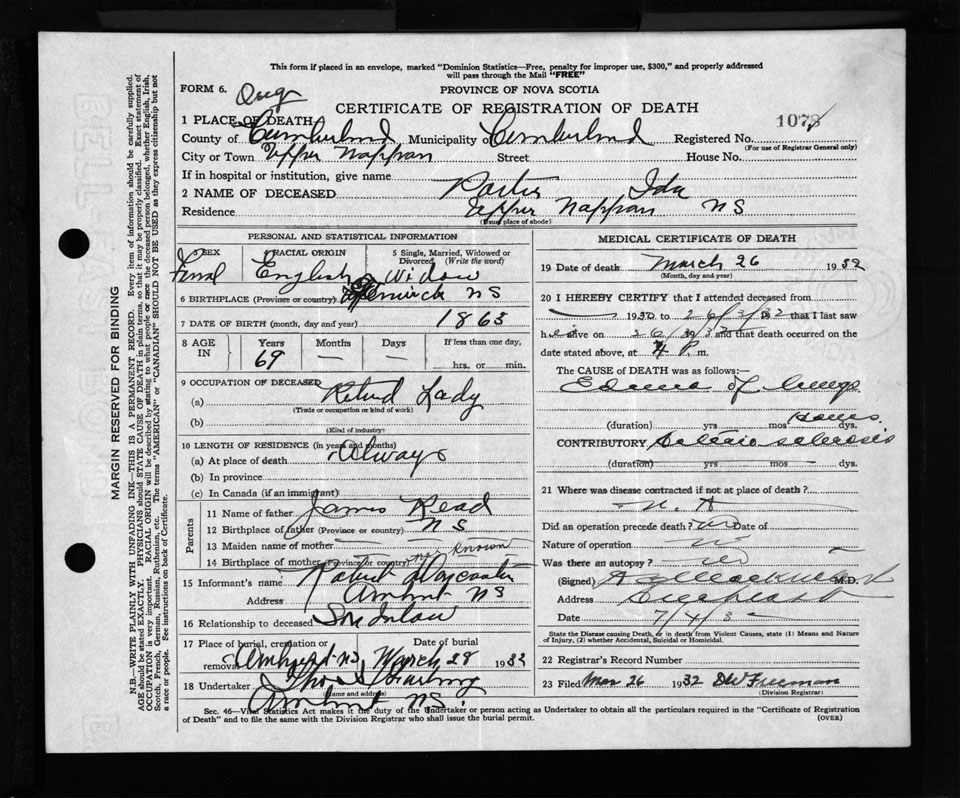 This form if placed in an envelope, marked "Dominion Statistics—Free, penalty for improper use, $300," and properly addressed
will pass through the Mail "FREE"
FORM 6. PROVINCE OF NOVA SCOTIA
CERTIFICATE OF REGISTRATION OF DEATH
1 PLACE OF DEATH 1073
County of Cumberland Municipality of Cumberland Registered No.
(For use of Registrar General only)
City or Town Upper Nappan Street House No.
If in hospital or institution, give name
2 NAME OF DECEASED Porter Ida
Residence Upper Nappan NS
(Usual place of abode)
PERSONAL AND STATISTICAL INFORMATION
SEX RACIAL ORIGIN 5 Single, Married, Widowed or
Divorced (Write the word)
English Widow
6 BIRTHPLACE (Province or country) NS
7 DATE OF BIRTH (month, day and year) 1863
8 AGE IN Years Months Days If less than one day,
69 — — hrs. or min.
9 OCCUPATION OF DECEASED
(a) Retired Lady
(Trade or occupation or kind of work)
(b)
(Kind of industry)
10 LENGTH OF RESIDENCE (in years and months)
(a) At place of death Always
(b) In province
(c) In Canada (if an immigrant)
Parents
11 Name of father James Read
12 Birthplace of father (Province or country) NS
13 Maiden name of mother
14 Birthplace of mother (Province or country) not known
15 Informant's name
Address Amherst NS
16 Relationship to deceased Son Inlaw
17 Place of burial, cremation or removal Date of burial
Amherst NS March 28 1932
18 Undertaker
(Name and address)
Amherst NS.
MEDICAL CERTIFICATE OF DEATH
19 Date of death March 26 1932
(Month, day and year)
20 I HEREBY CERTIFY that I attended deceased from
1932 to 26/3/32 that I last saw
h er alive on 26/3/32 and that death occurred on
date stated above, at P. m.
The CAUSE of DEATH was as follows:—
Edema of lungs
(duration) yrs mos dys.
hours
CONTRIBUTORY
(duration) yrs mos dys.
21 Where was disease contracted if not at place of death?
Did an operation precede death? no Date of
Nature of operation
Was there an autopsy? no
(Signed) M.D.
Address
Date 7/4/3
State the Disease causing Death, or in death from Violent Causes, state (1) Means and Nature
of Injury, (2) whether Accidental, Suicidal or Homicidal.
22 Registrar's Record Number
23 Filed Mar 26 1932 DW Freeman
(Division Registrar)
Sec. 46—Vital Statistics Act makes it the duty of the Undertaker or person acting as Undertaker to obtain all the particulars required in the "Certificate of Registration
of Death" and to file the same with the Division Registrar who shall issue the burial permit.
(OVER)
MARGIN RESERVED FOR BINDING
N.B.—WRITE PLAINLY WITH UNFADING INK—THIS IS A PERMANENT RECORD. Every item of information should be carefully supplied.
AGE should be stated EXACTLY. PHYSICIANS should STATE CAUSE OF DEATH in plain terms, so that it may be properly classified. Exact statement of
OCCUPATION is very important. RACIAL ORIGIN will be described by stating to what people or race the deceased person belonged, whether English, Irish,
Scotch, French, German, Russian, Ruthenian, etc. The terms "AMERICAN" or "CANADIAN" SHOULD NOT BE USED as they express citizenship but not
a race or people. See instructions on back of Certificate.